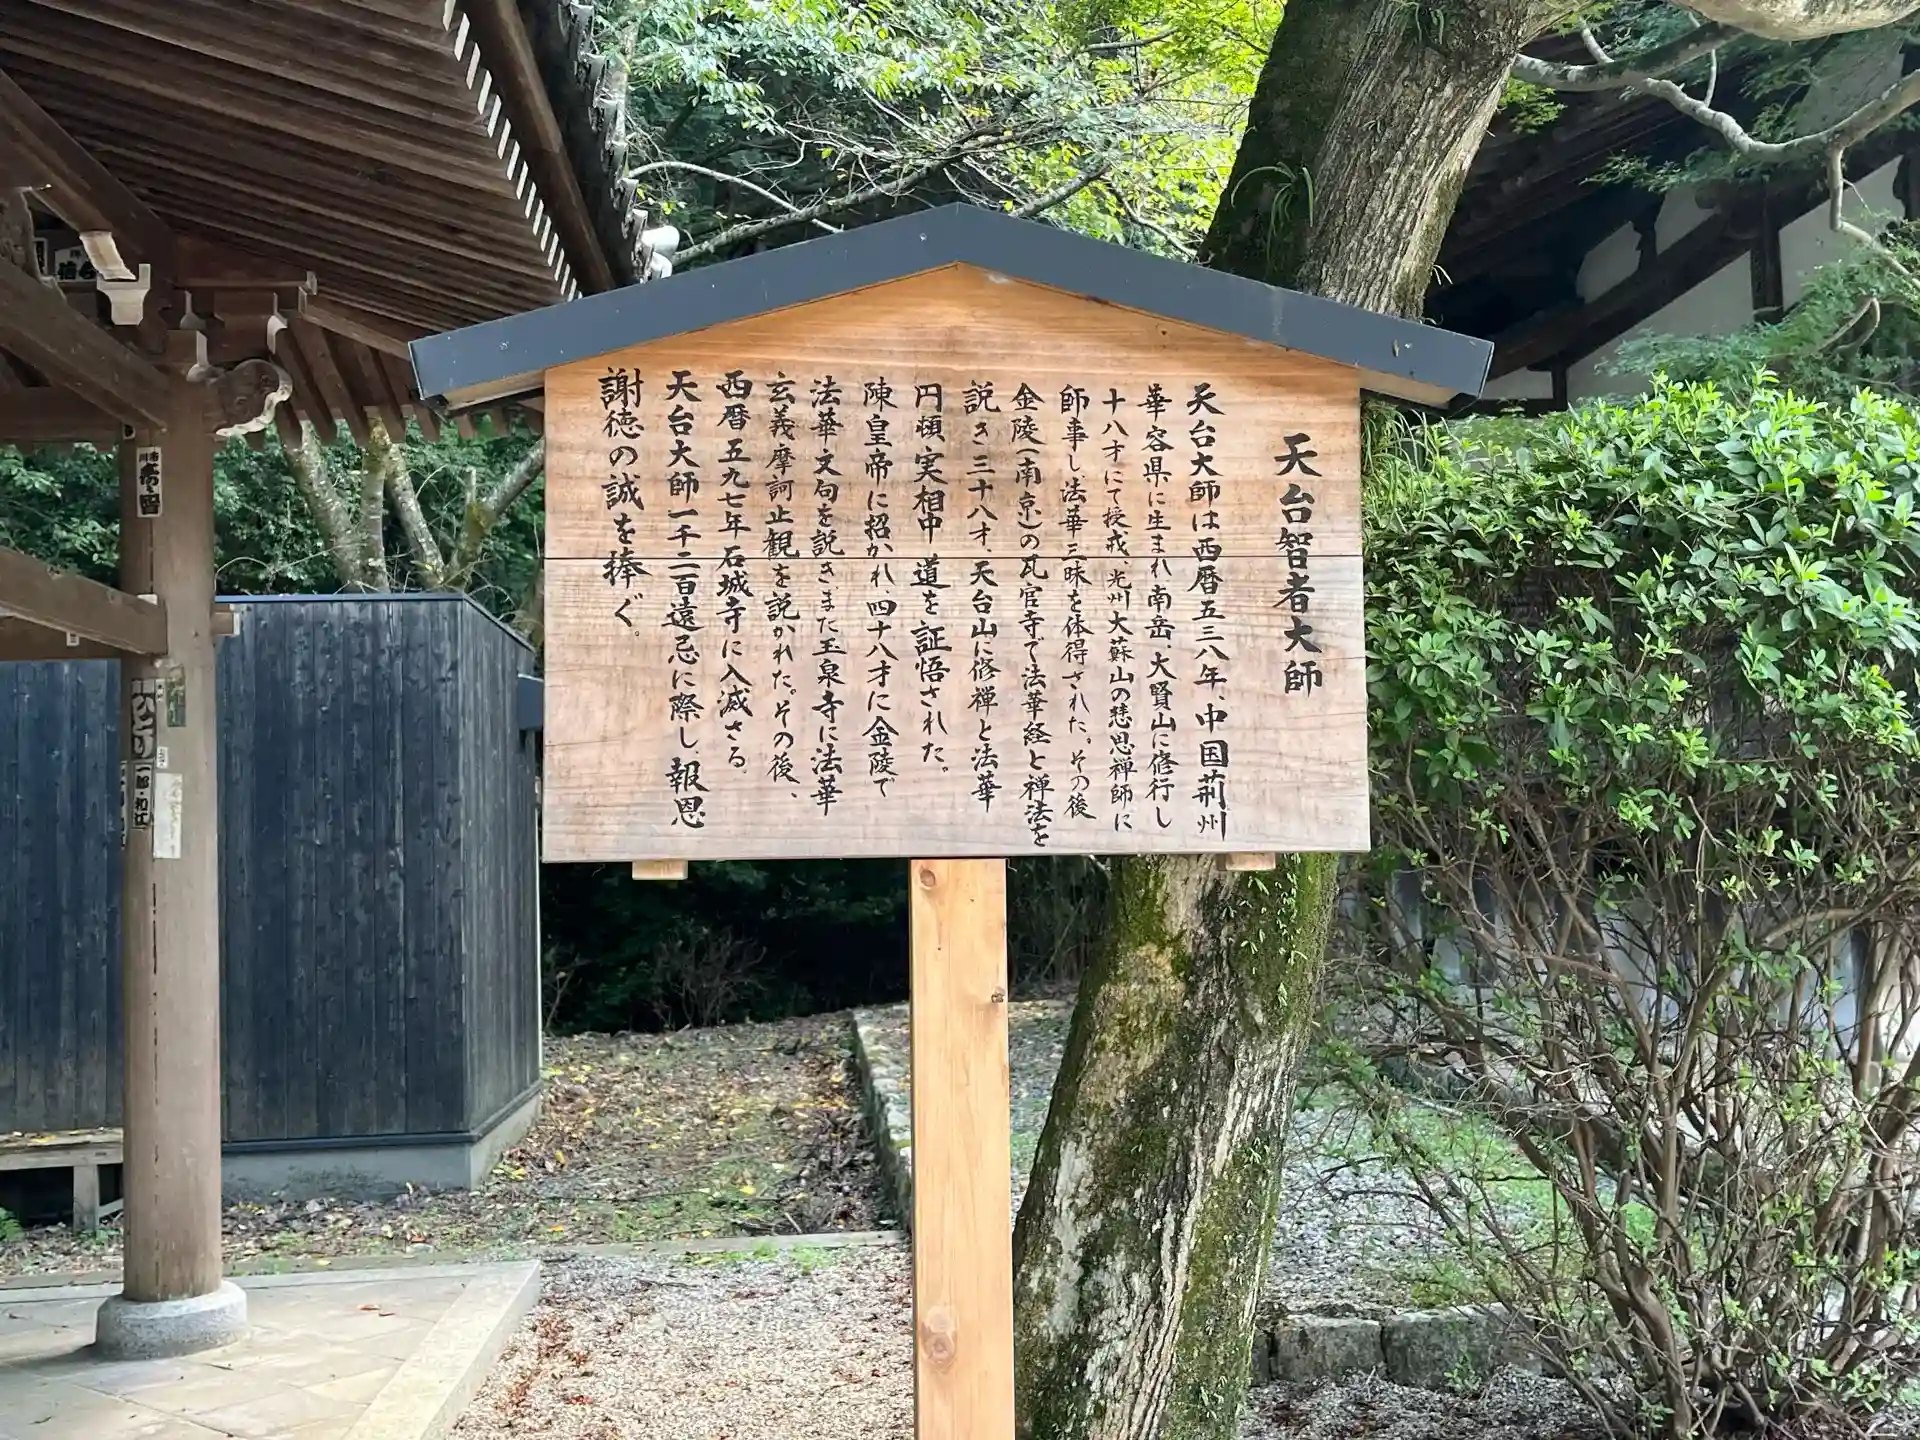 天台智者大師
天台大師は西暦五三八年、中国荊州
華容県に生まれ南岳、大賢山に修行し
十八才にて授戒、光州大蘇山の慧思禅師に
師事し法華三昧を体得された。その後
金陵(南京)の瓦官寺で法華経と禅法を
説き三十八才、天台山に修禅と法華
円頓実相中道を証悟された。
陳皇帝に招かれ、四十八才に金陵で
法華文句を説きまた玉泉寺に法華
玄義摩訶止観を説かれた。その後、
西暦五九七年石城寺に入滅さる。
天台大師一千二百遠忌に際し、報恩
謝徳の誠を捧ぐ。